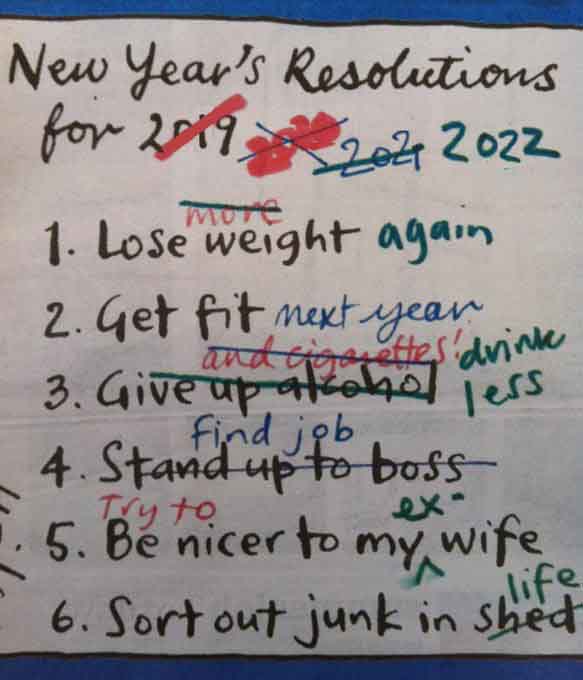 New Year's Resolutions
for 2019 2021 2022
more
1. Lose weight again
2. Get fit next year
and cigarettes! drink
3. Give up alcohol less
find job
4. Stand up to boss
Try to ex-
5. Be nicer to my wife
life
6. Sort out junk in shed